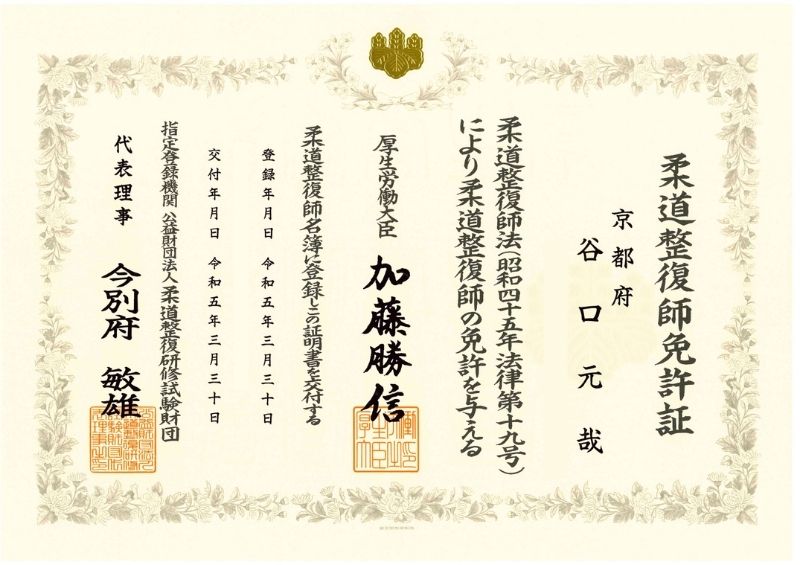 柔道整復師免許証
京都府
谷口元哉
柔道整復師法(昭和四十五年法律第十九号)
により柔道整復師の免許を与える
厚生労働大臣 加藤勝信
柔道整復師名簿に登録しこの証明書を交付する
登録年月日 令和五年三月三十日
交付年月日 令和五年三月三十日
指定登録機関 公益財団法人柔道整復研修試験財団
代表理事 今別府敏雄